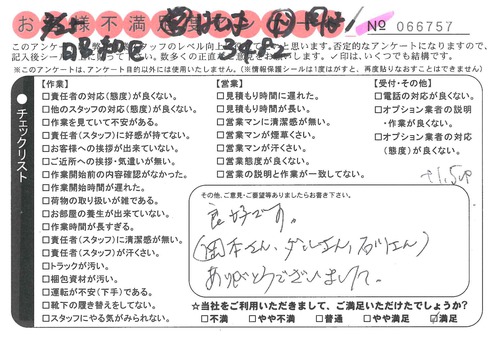 お 様不満足度 No 066757
昭和区
記入後シールを貼って下さい。数多くの正直なご意見をお願いします。✓印は、いくつでも結構です。
(※このアンケートは、アンケート目的以外には使用いたしません。(※情報保護シールは1度はがすと、再度貼りなおすことはできません)
チェックリスト
【作業】
□責任者の対応(態度)が良くない。
□他のスタッフの対応(態度)が良くない。
□作業を見ていて不安がある。
□責任者(スタッフ)に好感が持てない。
□お客様への挨拶が出来ていない。
□ご近所への挨拶・気遣いが無い。
□作業開始前の内容確認がなかった。
□作業開始時間が遅れた。
□荷物の取り扱いが雑である。
□お部屋の養生が出来ていない。
□作業時間が長すぎる。
□責任者(スタッフ)に清潔感が無い。
□責任者(スタッフ)が汗くさい。
□トラックが汚い。
□梱包資材が汚い。
□運転が不安(下手)である。
□靴下の履き替えをしてない。
□スタッフにやる気がみられない。
【営業】
□見積もり時間に遅れた。
□見積もり時間が長い。
□営業マンに清潔感が無い。
□営業マンが煙草くさい。
□営業マンが汗くさい。
□営業態度が良くない。
□営業の説明と作業が一致してない。
【受付・その他】
□電話の対応が良くない。
□オプション業者の説明
・作業が良くない。
□オプション業者の対応
(態度)が良くない。
その他、ご意見・ご要望等ありましたらお書き下さい。
良好です。
ありがとうございました。
☆当社をご利用いただきまして、ご満足いただけたでしょうか?
□不満 □やや不満 □普通 □やや満足 ☑満足